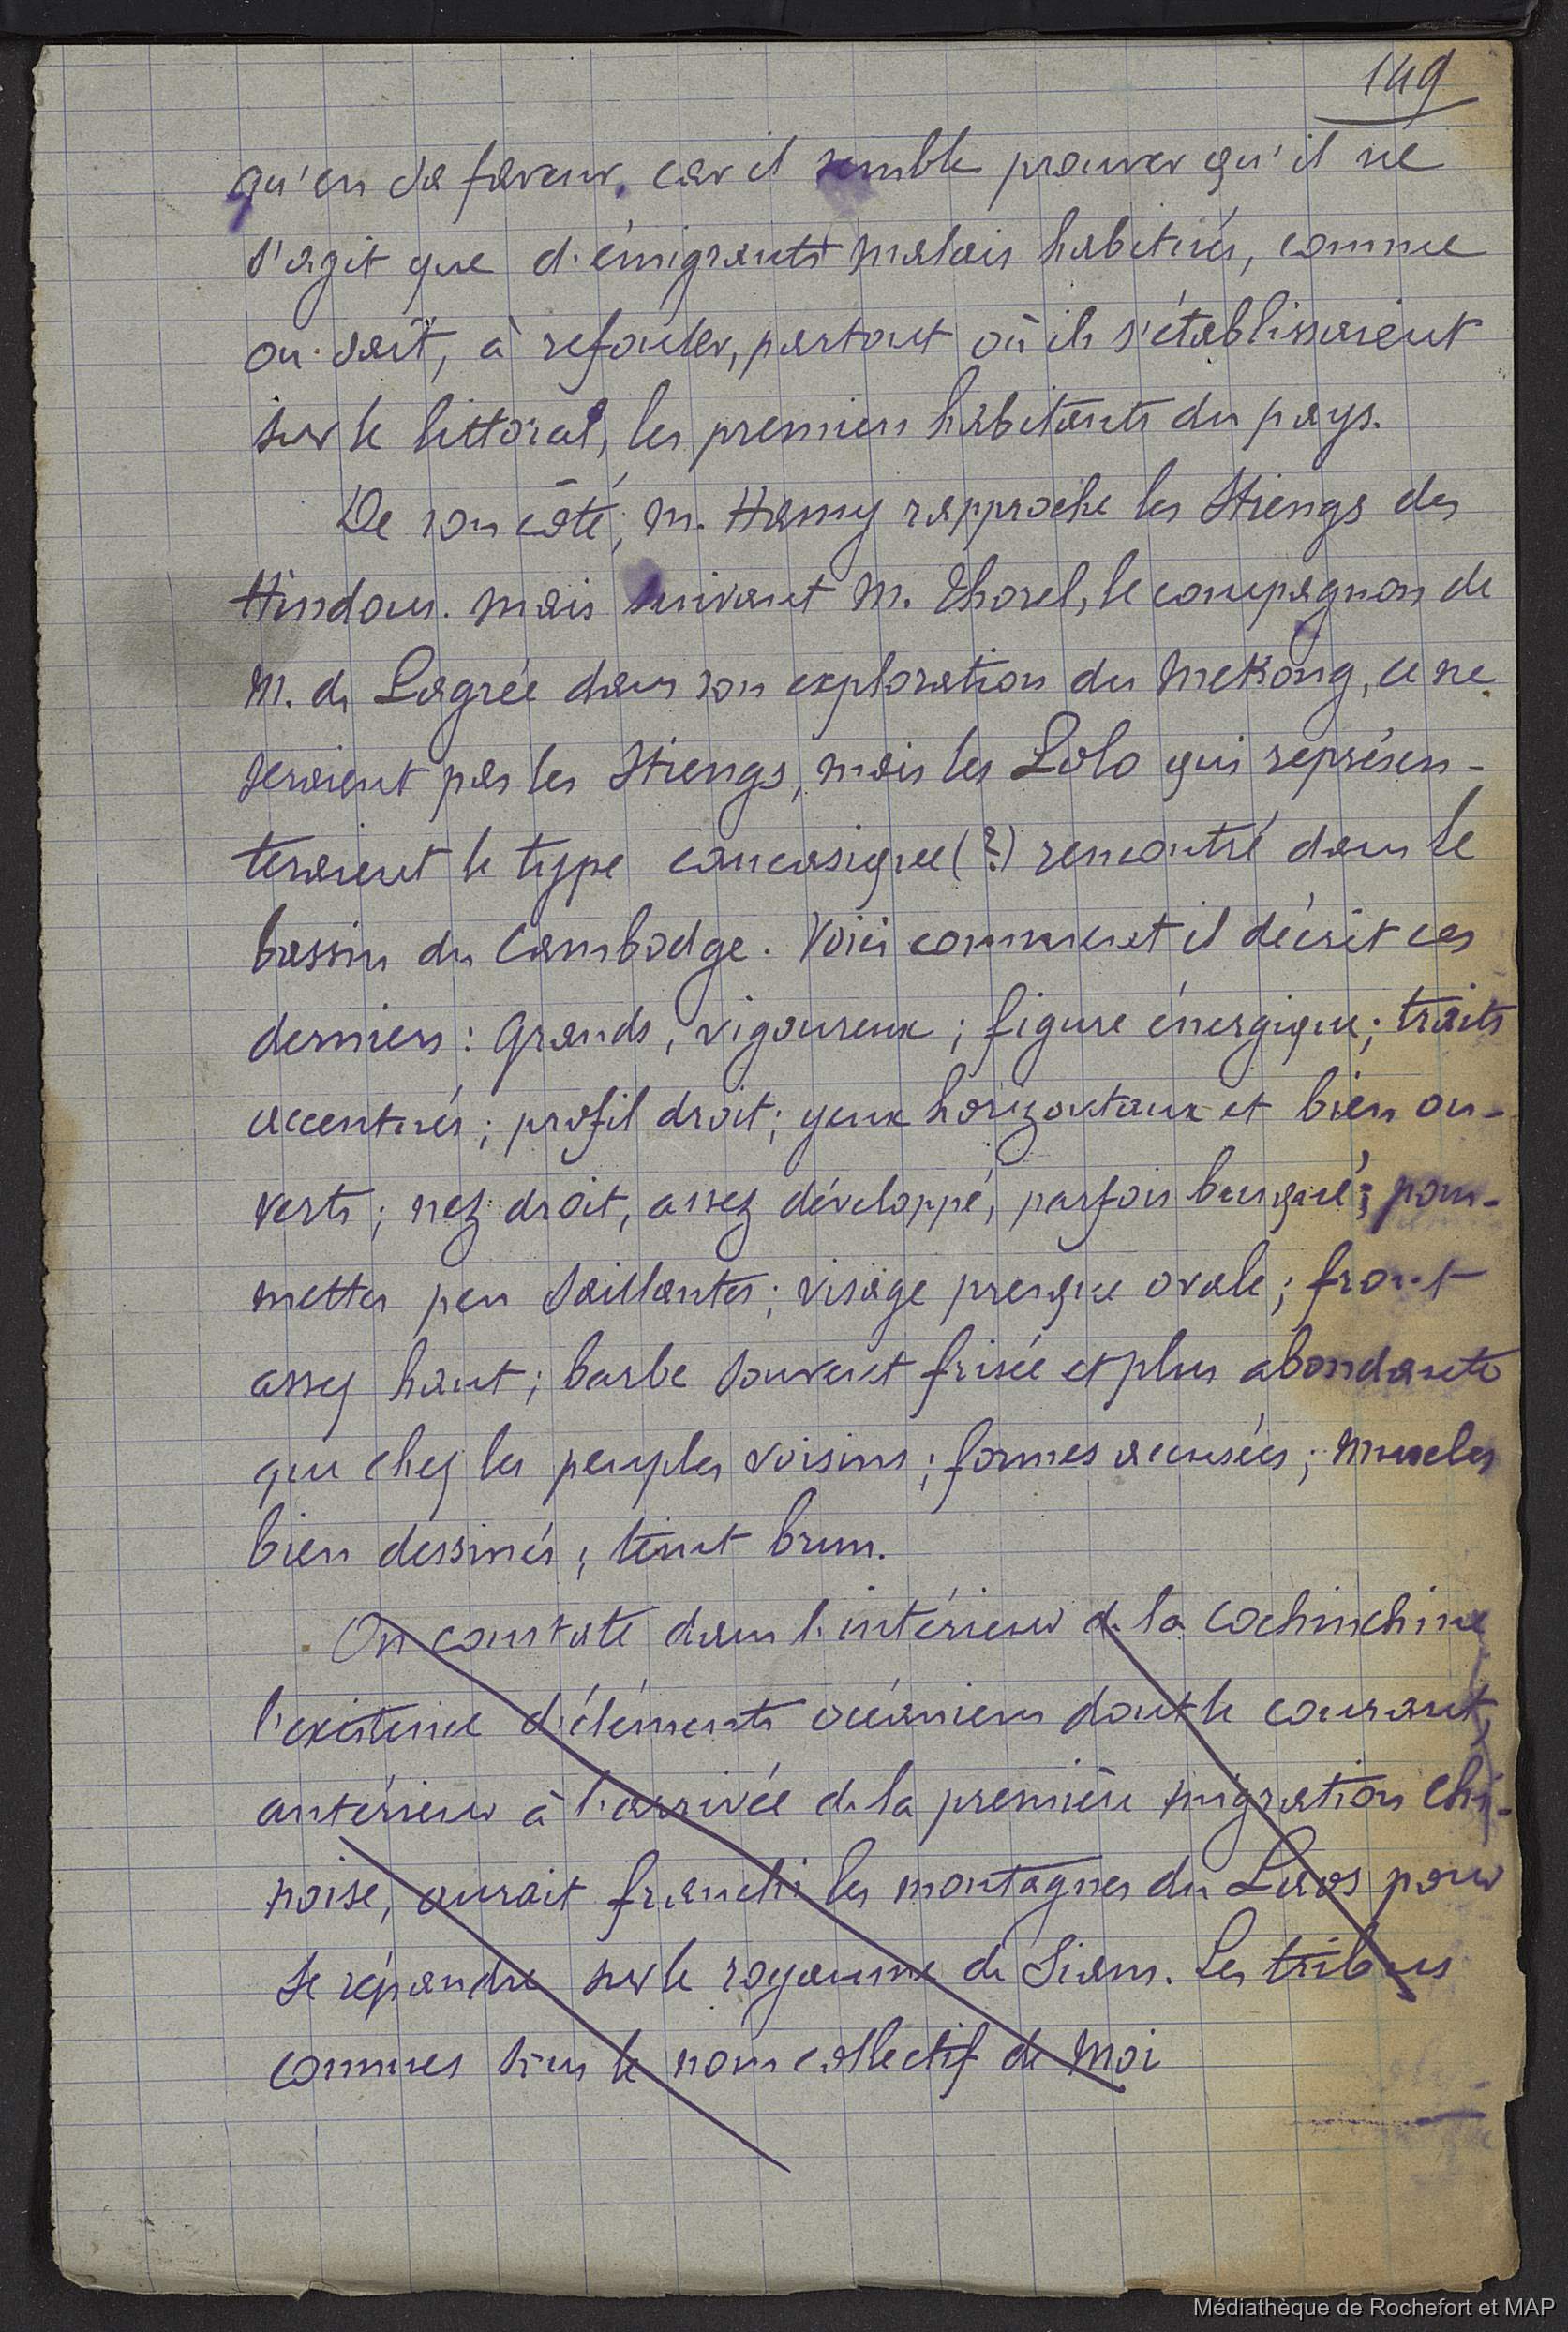 149
qu'en sa faveur, car il semble prouver qu'il ne
s'agit que d'émigrants malais habitués, comme
on sait, à refouler, partout où ils s'établissaient
sur le littoral, les premiers habitants du pays.
De son côté, M. Hamy rapproche les Stiengs des
Hindous. Mais suivant M. Thorel, le compagnon de
M. de Lagrée dans son exploration du Mékong, ce ne
seraient pas les Stiengs, mais les Lolo qui représen-
teraient le type caucasique (?) rencontré dans le
bassin du Cambodge. Voici comment il décrit ces
derniers : Grands, vigoureux ; figure énergique ; traits
accentués ; profil droit ; yeux horizontaux et bien ou-
verts ; nez droit, assez développé, parfois busqué ; pom-
mettes peu saillantes ; visage presque ovale ; front
assez haut ; barbe souvent frisée et plus abondante
que chez les peuples voisins ; formes accusées ; muscles
bien dessinés ; teint brun.
On constate dans l'intérieur de la Cochinchine
l'existence d'éléments océaniens dont le courant,
antérieur à l'arrivée de la première migration chi-
noise, aurait franchi les montagnes du Laos pour
se répandre sur le royaume de Siam. Les tribus
connues sous le nom collectif de Moï
Médiathèque de Rochefort et MAP